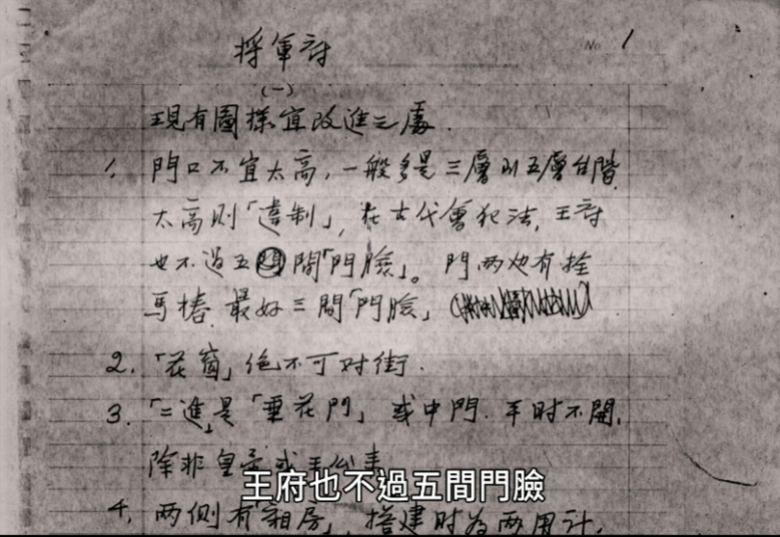 No 1
将軍府
(一)
現有圖樣宜改進之處
1. 門口不宜太高,一般多是三層到五層台階
太高則「違制」,在古代會犯法,王府
也不過五間「門臉」。門兩边有拴
馬樁 最好三間「門臉」
2.「花窗」绝不可対街.
3.「二進」是「垂花門」或中門.平时不開,
除非皇帝或王公来
王府也不過五間門臉
4. 两側有「廂房」,搭建时为两用计,